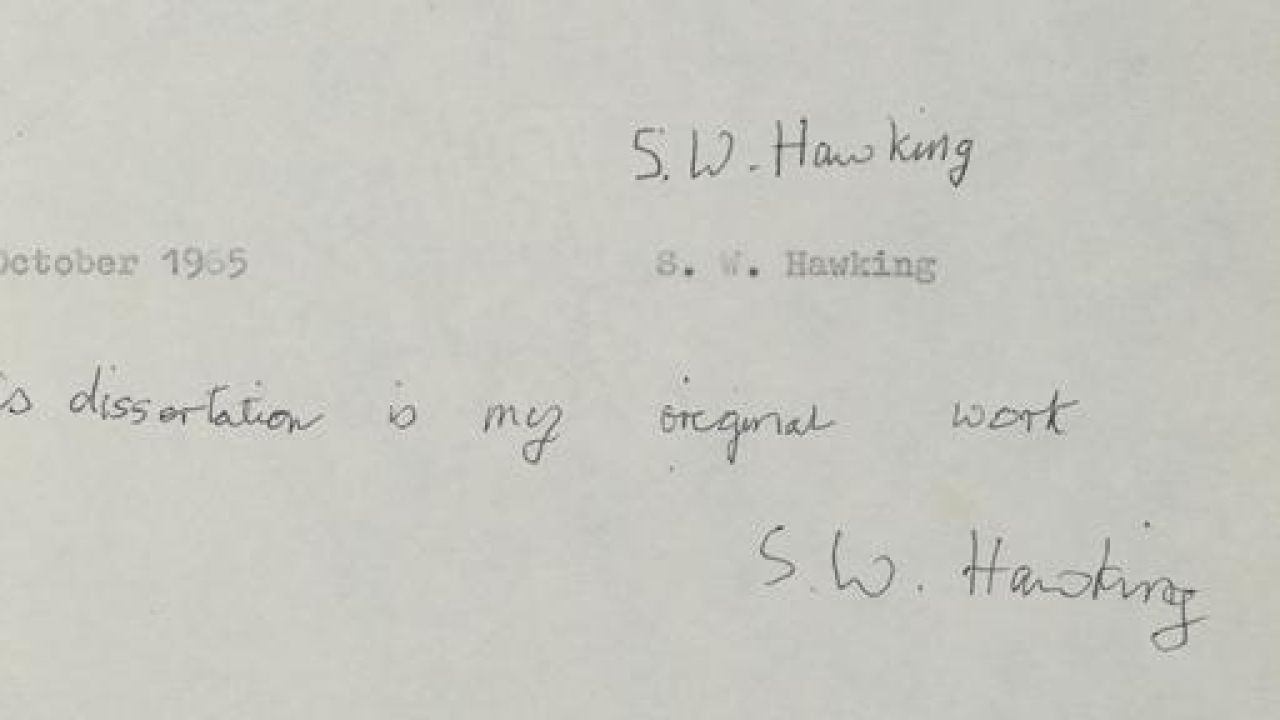 S. W. Hawking
October 1965 S. W. Hawking
is dissertation is my original work
S. W. Hawking